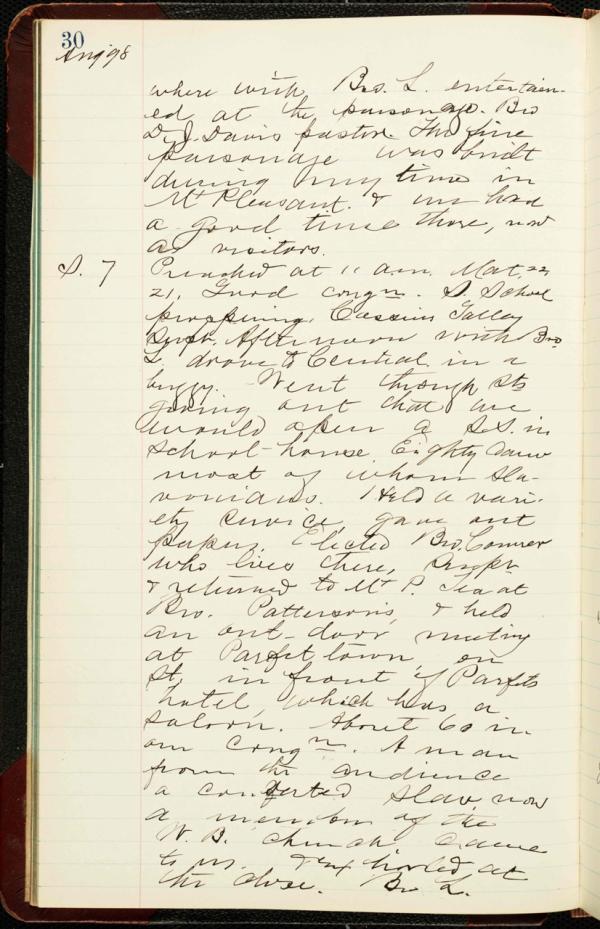 30
Aug 98
where with Bro. L. entertain-
ed at the parsonage. Bro
D. J. Davis pastor. The fine
parsonage was built
during my time in
Mt Pleasant. & we had
a good time there, now
as visitors.
S. 7 Preached at 11 a.m. Mat. 22
21. Good congn. S. School
prospering, Cassius Galley
Supt. Afternoon with Bro
L. drove to Central in a
buggy. Went through sts
giving out that we
would open a S.S. in
School-house. Eighty came
most of whom Sla-
vonians. Held a vari-
ety service, gave out
papers. Elected Bro. Conner
who lives there, Supt
& returned to Mt P. Tea at
Bro. Patterson's, & held
an out-door meeting
at Parfittown, on
St. in front of Parfits
hotel, which has a
saloon. About 60 in
our Congn. A man
from the audience
a converted Slav, now
a member of the
U. B. church came
to us. & exhorted at
the close. Bro L.